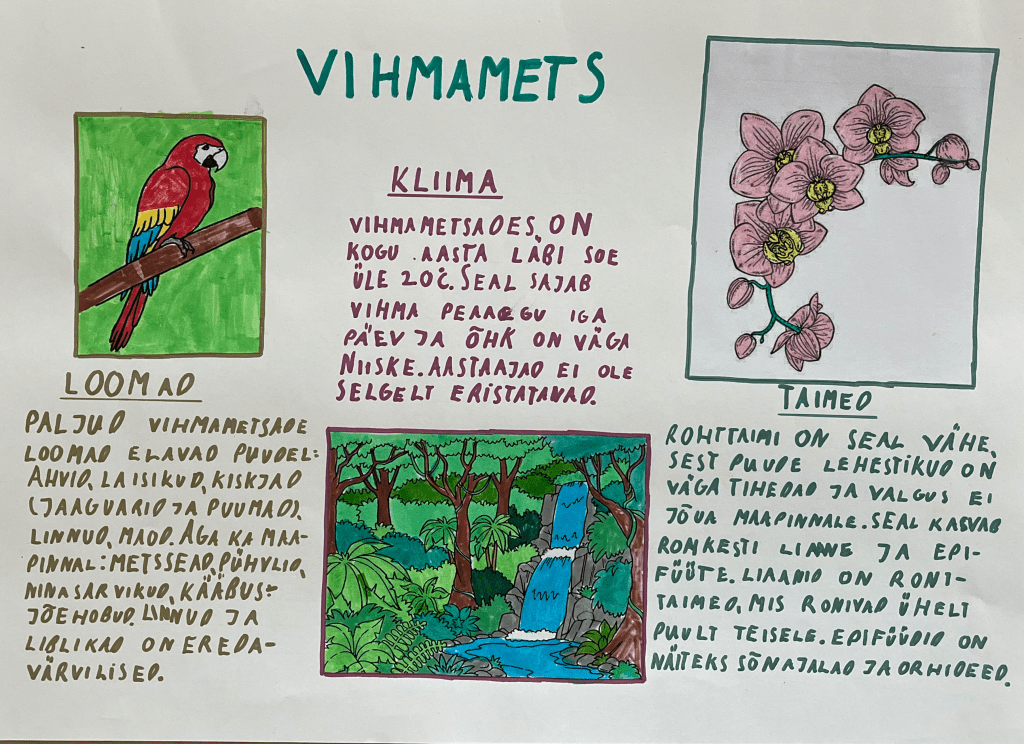 VIHMAMETS
LOOMAD
PALJUD VIHMAMETSADE
LOOMAD ELAVAD PUUDEL:
AHVID, LAISIKUD, KISKJAD
(JAAGUARID JA PUUMAD),
LINNUD, MAOD. AGA KA MAA-
PINNAL: METSSEAD, PÜHVLID,
NINASARVIKUD, KÄÄBUS-
JÕEHOBUD. LINNUD JA
LIBLIKAD ON EREDA-
VÄRVILISED.
KLIIMA
VIHMAMETSADES ON
KOGU AASTA LÄBI SOE
ÜLE 20°C. SEAL SAJAB
VIHMA PEAAEGU IGA
PÄEV JA ÕHK ON VÄGA
NIISKE. AASTAAJAD EI OLE
SELGELT ERISTATAVAD.
TAIMED
ROHTTAIMI ON SEAL VÄHE,
SEST PUUDE LEHESTIKUD ON
VÄGA TIHEDAD JA VALGUS EI
JÕUA MAAPINNALE. SEAL KASVAB
ROHKESTI LIAANE JA EPI-
FÜÜTE. LIAANID ON RONI-
TAIMED, MIS RONIVAD ÜHELT
PUULT TEISELE. EPIFÜÜDID ON
NÄITEKS SÕNAJALAD JA ORHIDEED.